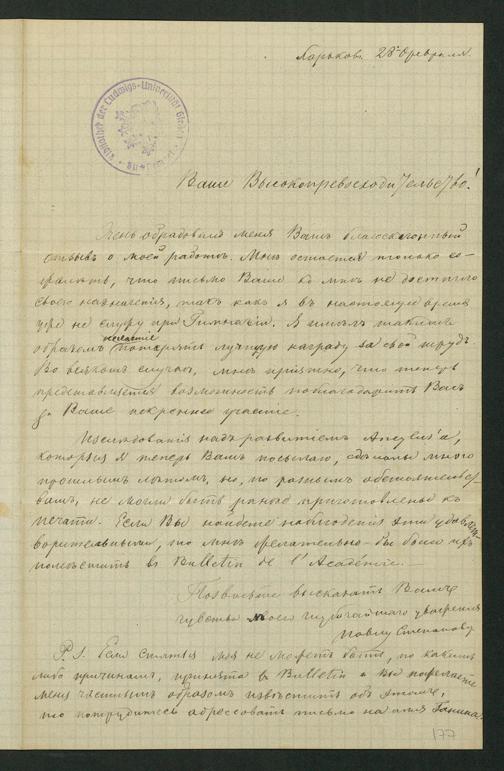 Харьковъ 28е Февраля.
Bibliothek der Ludwigs-Universität Giessen
Ваше Высокопревосходительство!
Очень обрадовалъ меня Вашъ благосклонный
отзывъ о моей работѣ. Мнѣ остается только со-
жалѣть, что письмо Ваше ко мнѣ не достигло
своего назначенія, такъ какъ я въ настоящее время
уже не служу при Гимназіи. Я имѣлъ такимъ
образомъ несчастіе потерять лучшую награду за свой трудъ.
Во всякомъ случаѣ, мнѣ пріятно, что теперь
представляется возможность поблагодарить Васъ
за Ваше искреннее участіе.
Изслѣдованія надъ развитіемъ Ancylus'а,
которыя я теперь Вамъ посылаю, сдѣланы много
прошлымъ лѣтомъ, но, по разнымъ обстоятельст-
вамъ, не могли быть ранѣе приготовлены къ
печати. Если Вы найдете наблюденія эти удовлет-
ворительными, то мнѣ желательно бы было ихъ
помѣстить въ Bulletin de l'Académie.
Позвольте высказать Вамъ
чувство моего глубочайшаго уваженія
Павлу Степанову
P. S. Если статья моя не можетъ быть, по какимъ
либо причинамъ, принята въ Bulletin и Вы пожелаете
меня частнымъ образомъ извѣстить объ этомъ,
то потрудитесь адрессовать письмо на имя
177